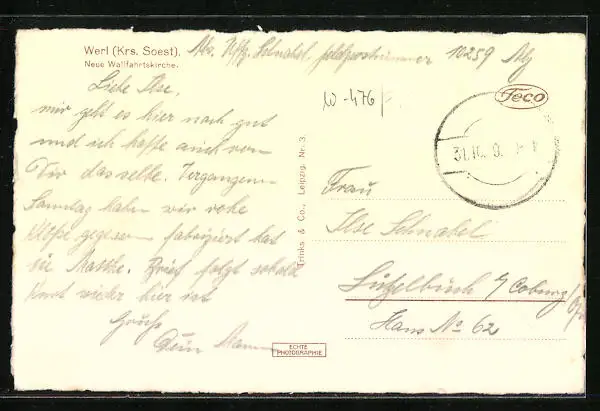 Werl (Krs. Soest),
Neue Wallfahrtskirche.
Abs. Uffz. Schnabel, Feldpostnummer 10259
W-476/
Feco
31.10.
Liebe Ilse,
mir geht es hier noch gut
und ich hoffe auch von
Dir dasselbe. Vergangenen
Sonntag haben wir rohe
Klöße gegessen fabriziert hat
sie Mattke. Brief folgt sobald
Kurt wieder hier ist
Grüße
Dein
Trinks & Co., Leipzig. Nr. 3.
Frau
Ilse Schnabel
Lützelbuch b/ Coburg
Haus No 62
ECHTE
PHOTOGRAPHIE